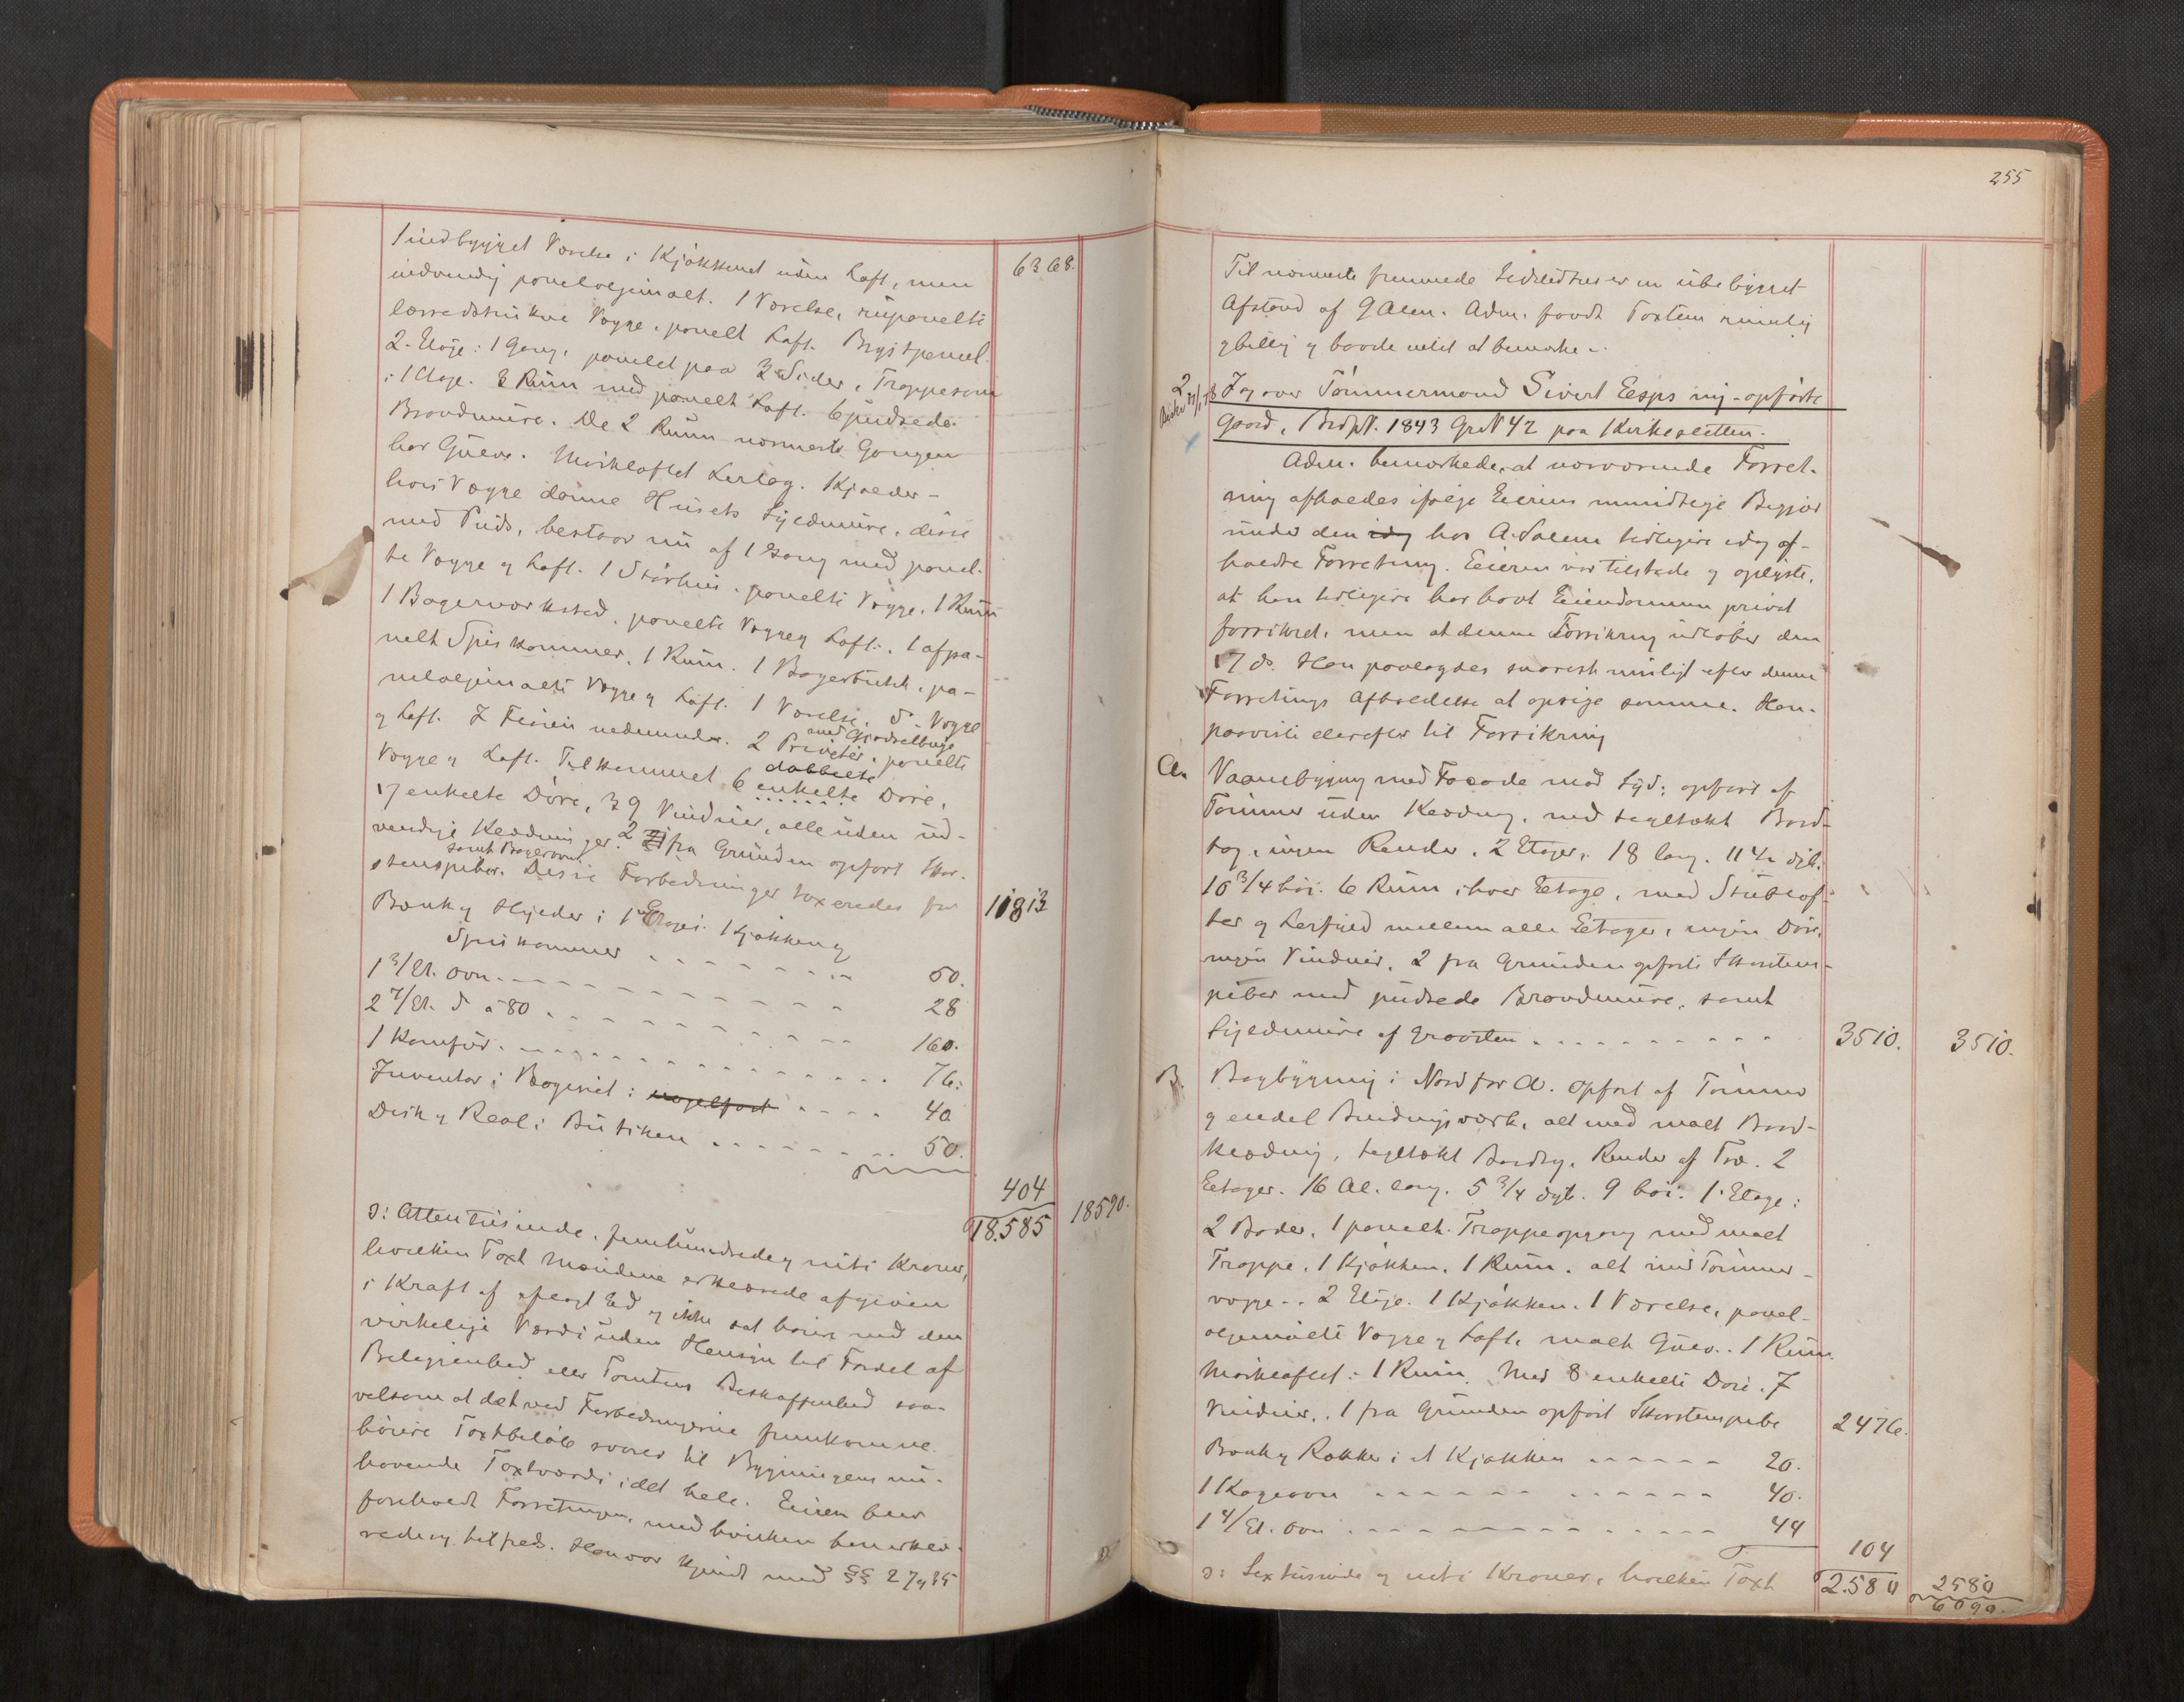 1 indbygget Værelse i Kjøkkenet uden Loft, men 6368.
indvendig paneloljemalt. 1 Værelse, rupanelte
lærredstrukne Vægge, panelt Loft. Brystpanel.
2. Etage: 1 Gang, panelet paa 3 Sider, Trappe som
i 1 Etage. 8 Rum med panelt Loft. 6 pudsede
Brandmure. De 2 Rum nærmest Gangen
har Gulve. Mørkloftet Lerlag. Kjælder-
hvis Vægge danne Husets Syldmure, disse
med Puds, bestaar nu af 1 Gang med panel-
te Vægge og Loft. 1 Størhus, panelte Vægge. 1 Rum
1 Bagerværksted, panelte Vægge og Loft. 1 afpa-
nelt Spiskammer. 1 Rum. 1 Bagerbutik, pa-
neloljemalte Vægge og Loft. 1 Værelse, do. Vægge
og Loft. I Fløien nedenunder 2 Priveter med Gjødselbinge, panelte
Vægge og Loft. Tilkommet 6 dobbelte enkelte Døre,
17 enkelte Døre, 39 Vinduer, alle uden ud-
vendige Klædninger. 2 fra Grunden opført Skor-
stenspiber samt Bagerovn. Disse Forbedringer taxeredes for 11813
Bænk og Hylder i 1 Etages Kjøkken og
Spiskammer 50.
1 3/Et. Ovn 28
2 7/Et. do a 80 160.
1 Komfur 76.
Inventar i Bageriet: 40
Disk og Reol i Butiken 50.
404
18.585 18590.
ↄ: Atten Tusinde, femhundrede og niti Kroner,
hvilken Taxt Mændene erklærede afgiven
i Kraft af aflagt Ed og ikke sat høiere end den
virkelige Værdi uden Hensyn til Fordel af
Beliggenhed eller Tomtens Beskaffenhed saa-
velsom at det ved Forbedringerne fremkomne
høiere Taxtbeløb svarer til Bygningens nu-
havende Taxtværdi i det hele. Eieren blev
foreholdt Forretningen, med hvilken han erklæ-
rede sig tilfreds. Han var kjendt med §§ 27 og 35
255
Til nærmeste fremmede Ildstedhus er en ubebygget
Afstand af 9 Alen. Adm. fandt Taxten rimelig
og billig og havde intet at bemærke.
2 I og over Tømmermand Sivert Esps ny-opførte
Gaard, Brdpl. 1843 Gr N 42 paa Kirkesletten.
Adm. bemærkede, at nærværende Forret-
ning afholdes ifølge Eierens mundtlige Begjær
under den idag hos A. Solem tidligere idag af-
holdte Forretning. Eieren var tilstede og oplyste,
at han tidligere har havt Eiendommen privat
forsikret, men at denne Forsikring udløber den
17 ds. Han paalagdes snarest muligt efter denne
Forretnings Afholdelse at opsige samme. Han
paaviste derefter til Forsikring
A. Vaanebygning med Facade mod Syd, opført af
Tømmer uden Klædning, med tegltækt Bord-
tag, ingen Render. 2 Etager. 18 lang. 11 1/2 dyb.
10 3/4 høi. 6 Rum i hver Etage, med Stubloft-
ter og Lerfyld mellem alle Etager, ingen Døre,
ingen Vinduer, 2 fra Grunden opførte Skorstens-
piber med pudsede Brandmure, samt
Syldmure af Graasten 3510. 3510.
B. Bagbygning i Nord for A. opført af Tømmer
og endel Bindingsværk, alt med malt Bord-
klædning, tegltækt Bordtag, Render af Træ. 2
Etager. 16 Al. lang. 5 3/4 dyb. 9 høi. 1 Etage:
2 Boder, 1 panelt Trappeopgang med malt
Trappe, 1 Kjøkken, 1 Rum, alt med Tømmer-
vægge. 2 Etage. 1 Kjøkken. 1 Værelse, panel-
oljemalte Vægge og Loft, malt Gulv. 1 Rum.
Mørkloftet: 1 Rum. Med 8 enkelte Døre. 7
Vinduer. 1 fra Grunden opført Skorstenspibe 2476.
Bænk og Rækker i et Kjøkken 20.
1 Kogeovn 40.
1 4/Et. Ovn 44
104
ↄ: Sextusinde og niti Kroner, hvilken Taxt 2.580 2580
6090.